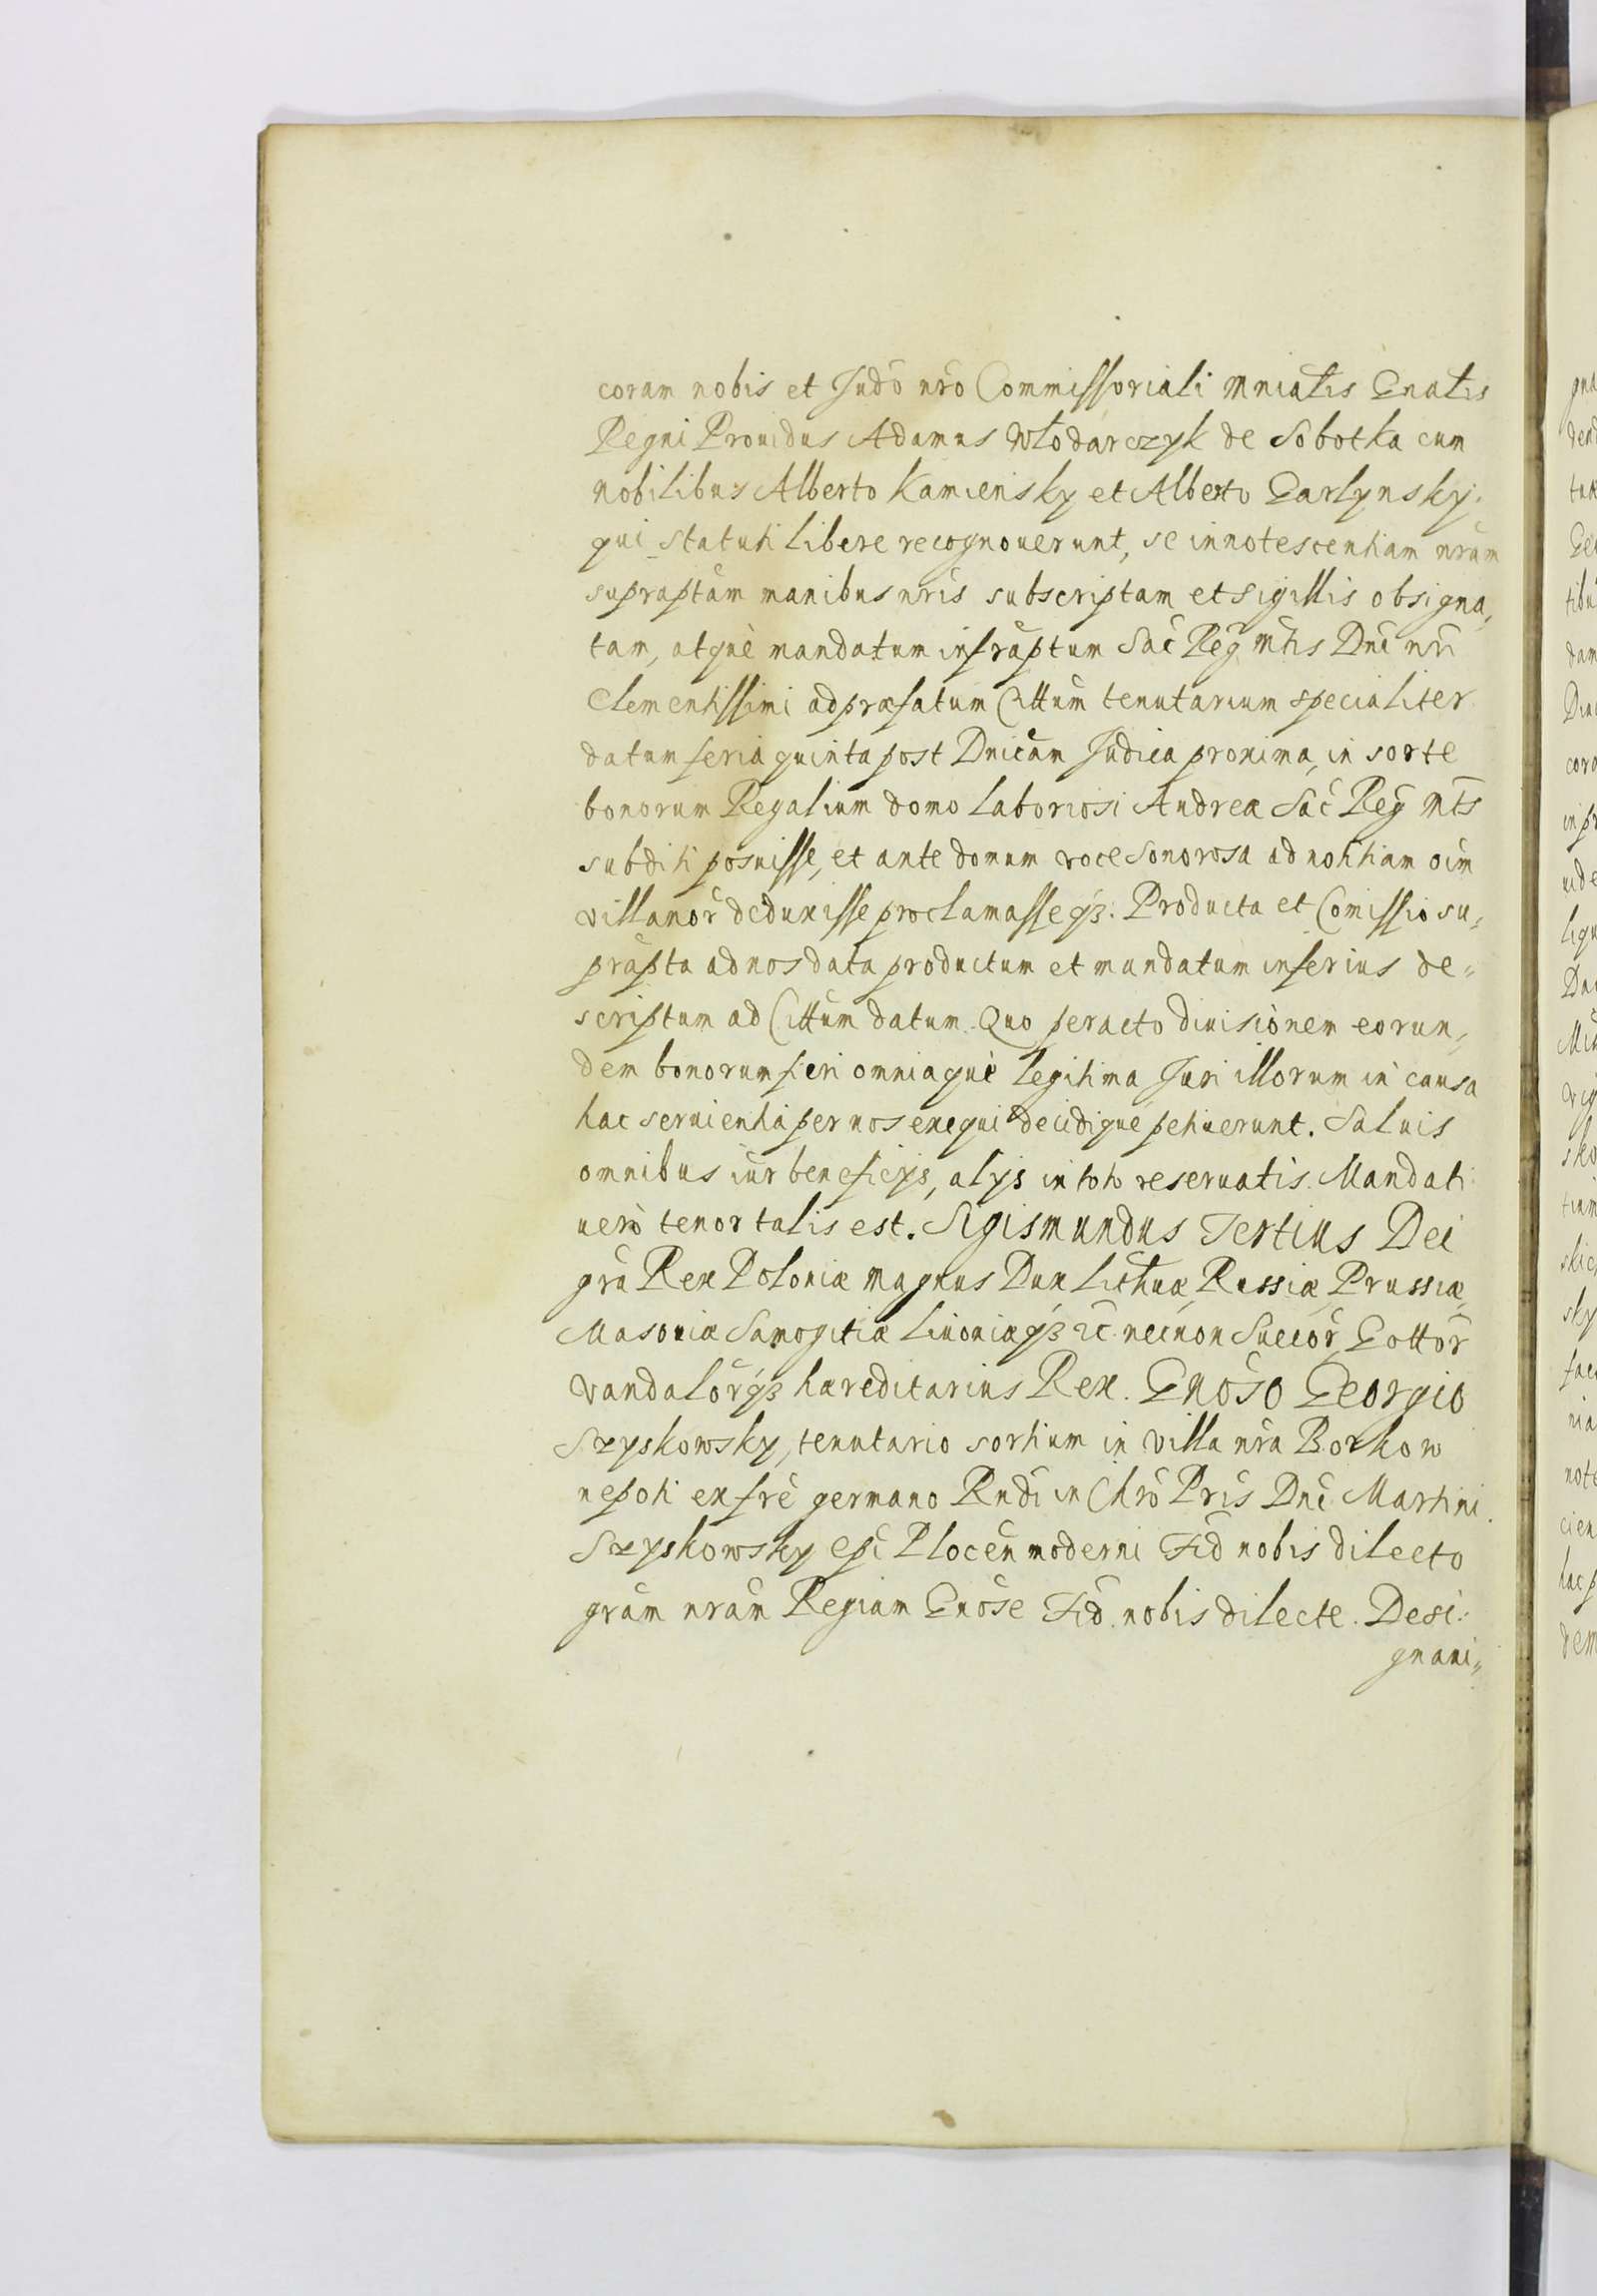 coram nobis et Judō nrō Commissoriali Mnialis Gnalis
Regni Prouidus Adamus Włodarczyk de Sobotka cum
nobilibus Alberto Kamiensky et Alberto Garlynsky.
qui statuti libere recognouerunt, se innotescentiam nr̄am
suprāptam manibus nrīs subscriptam et sigillis obsigna,
tam, atquè mandatum infrāptum Sac̄ Reg̃ Mtis Dnī nrī
Clementissimi ad præfatum Cittūm tenutarium specialiter
datum feria quinta post Dnicām Judica proxima, in sorte
bonorum Regalium domo laboriosi Andreæ Sac̄ Reg̃ Mtīs
subditi posuisse, et ante domum voce sonorosa ad notitiam oīm
villanor̄ deduxisse proclamasseqȝ. Producta et Com̄issio su,
prāpta ad nos data productum et mandatum inferius de=
scriptum ad Cittūm datum. Quo peracto diuisionem eorun,
dem bonorum fieri omniaquè legitima Juri illorum in causa
hac seruientia per nos exequi decidique petiuerunt. Saluis
omnibus iur̄ beneficijs, alys in toto reseruatis. Mandati
uerò tenor talis est. Sigismundus Tertius Dei
grā Rex Poloniæ magnus Dux Lithuæ, Russiæ, Prussiæ,
Masouiæ Samogitiæ Liuoniæqȝ ⁊c̄. necnon Suecor̄, Gottor̄
Vandalor̄qȝ hæreditarius Rex. Gnōso Georgio
Szyskowsky, tenutario sortium in villa nrā Borkow
nepoti ex frē germano Rndī in Chrō Prīs Dnī Martini
Szyskowsky Epī Plocēn moderni Fid̄ nobis dilecto
grām nrām Regiam Gnōse Fid̄. nobis dilecte. Desi=
gnaui,,